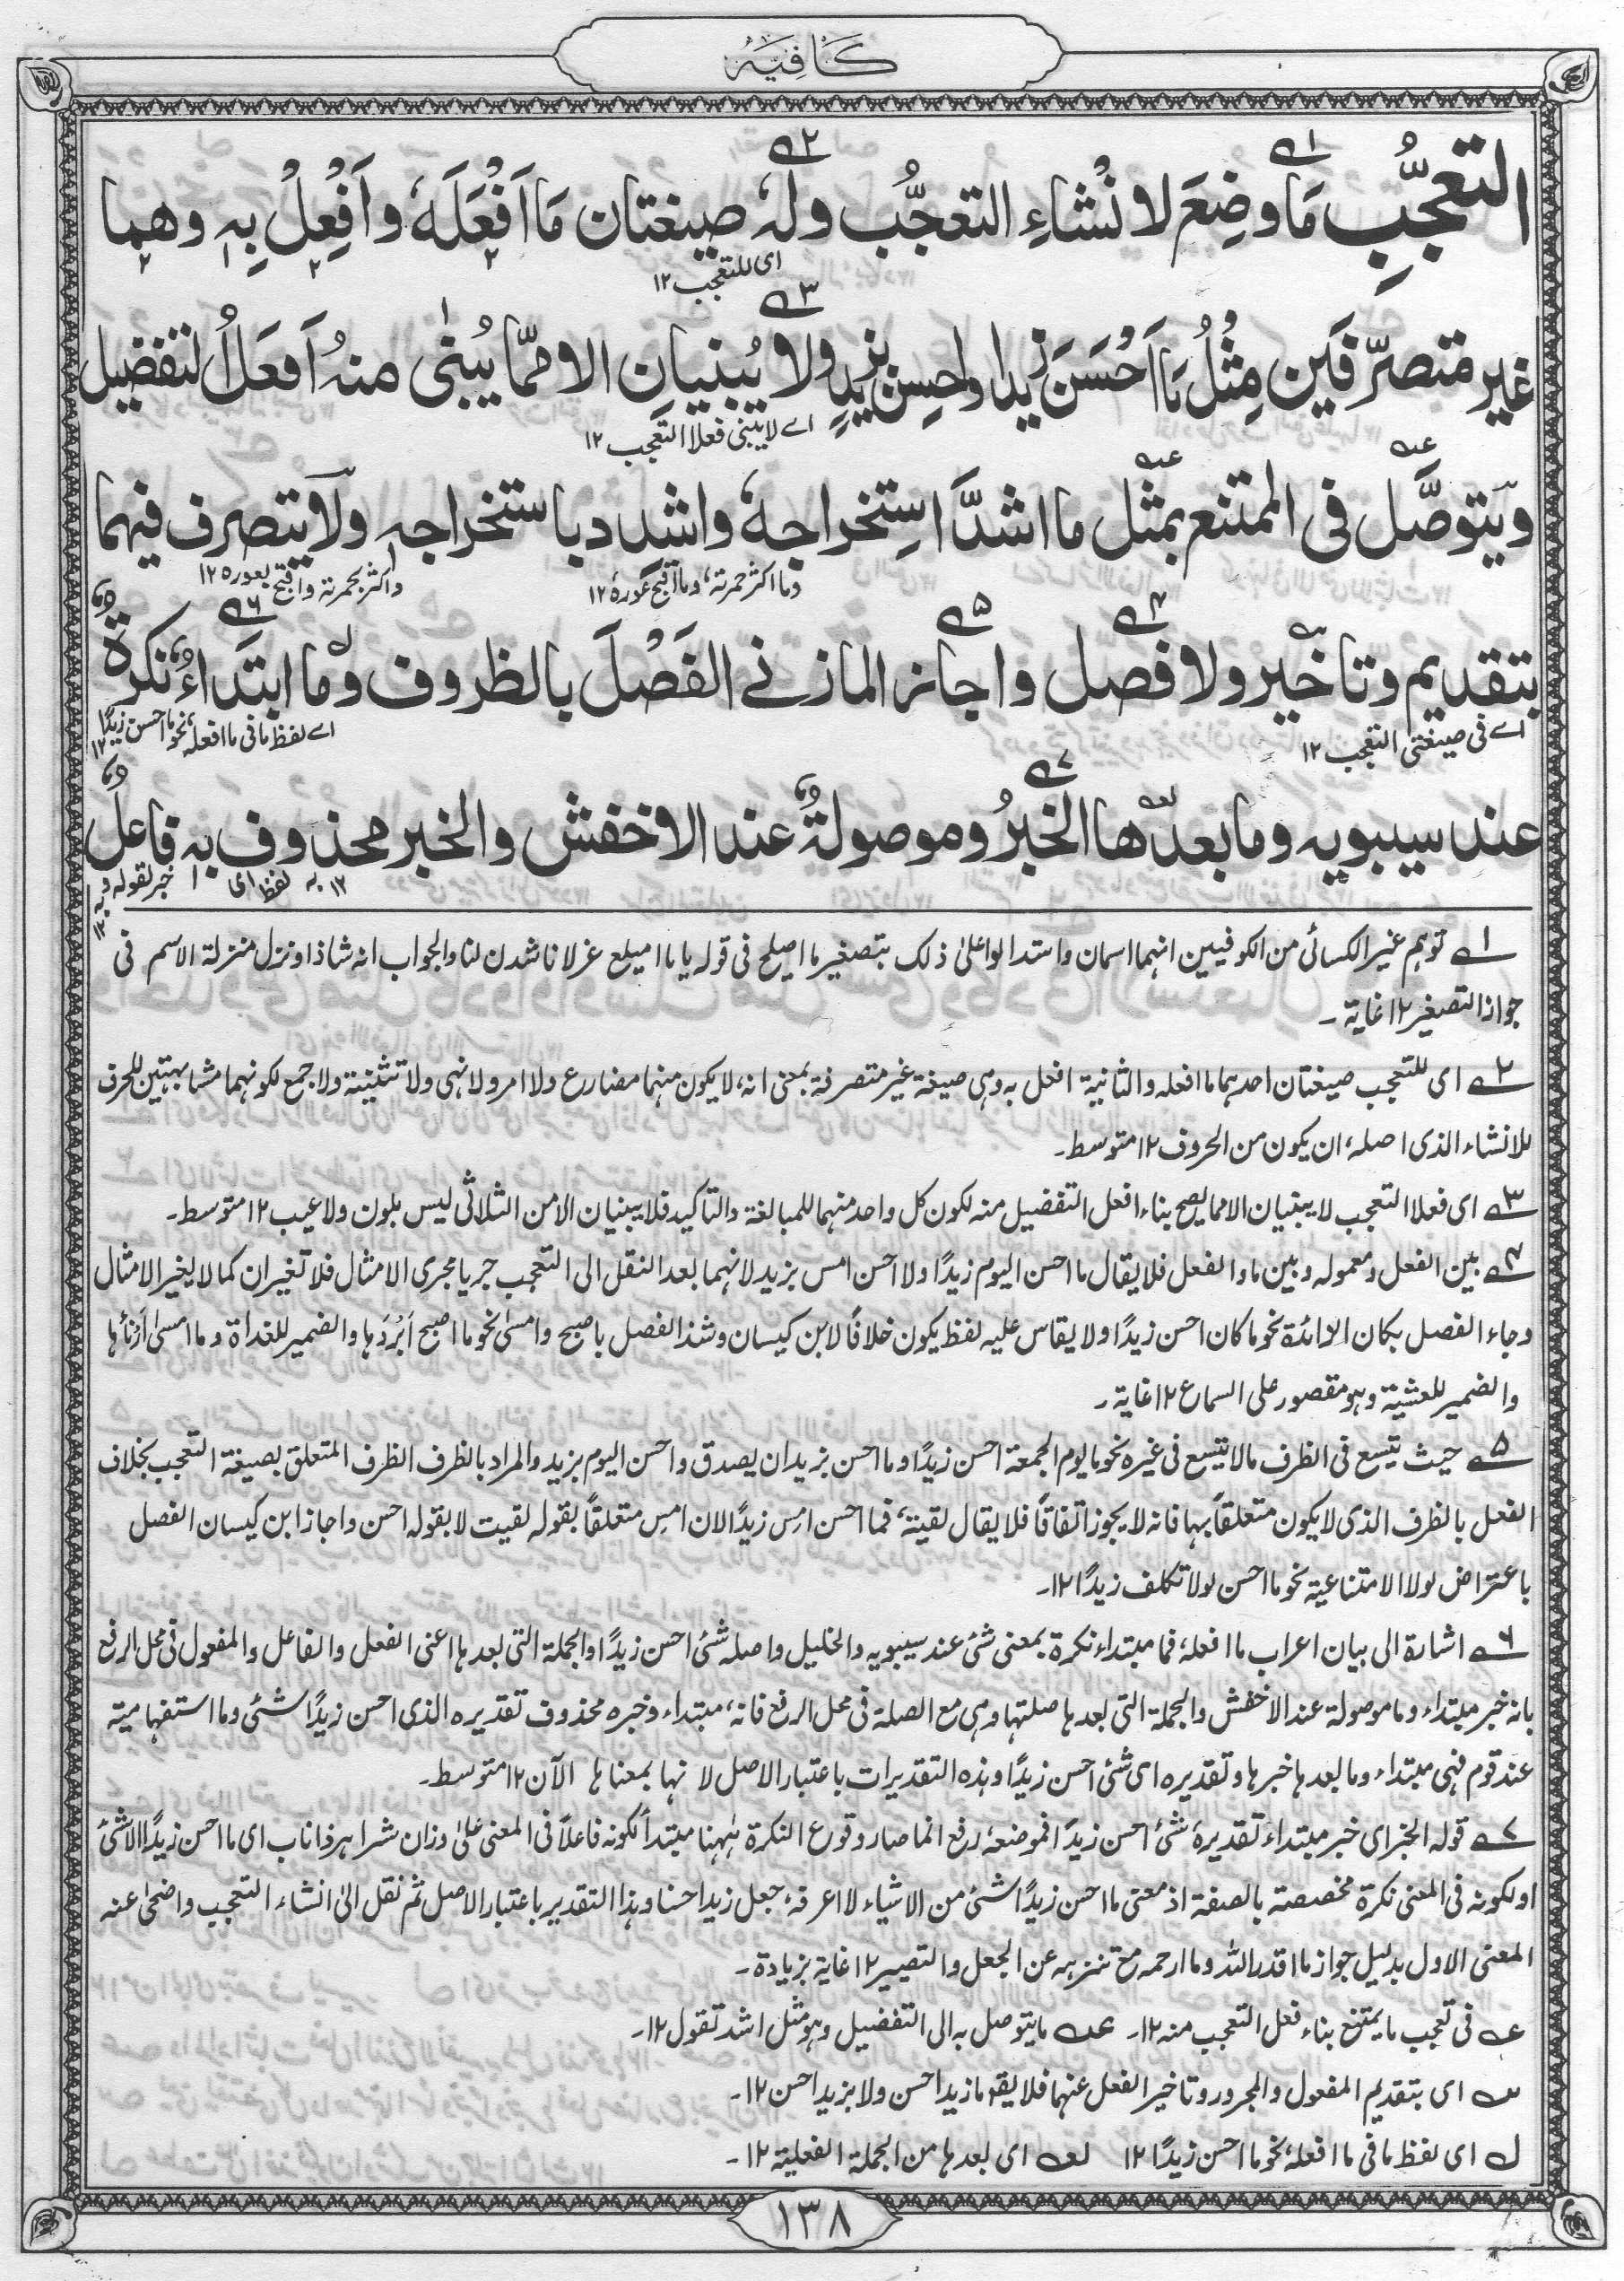 كَافِيَه
التعجُّبِ مَا وضِعَ لانْشاءِ التعجُّب ولهٗ صيغتان مَا اَفْعَلَهٗ واَفْعِلْ بِهٖ وهما
اى للتعجب ١٢
غير متصرّفَين مِثْلُ مَا اَحْسَنَ زيدا واحسِن بزيدٍ ولا يُبنيانِ الا ممّا يُبنٰى منهُ اَفعَلُ التفضيل
اے لا يبنى فعلا التعجب ١٢
ويَتوصَّل فى الممتنع بمثل ما اشدَّ استِخراجهٗ واشدد باستخراجهٖ ولا يتصرف فيهما
وما اكثر حمرته، وما اقبح عوره ١٢ واكثر بحمرته واقبح بعوره ١٢
بتقديم وتاخير ولا فصل واجاز المازنے الفَصْلَ بالظروف وما ابتداءٌ نكرةٌ
اے فى صيغتى التعجب ١٢ اے لفظ ما فى ما افعله، نحو ما احسن زيدًا ١٢
عند سيبويه وما بعدها الخبرُ وموصولةٌ عند الاخفش والخبر محذوف به فاعلٌ
لفظ اى به ١٢ خبر لقوله وبه ١٢
١ توهم غير الكسائى من الكوفيين انهما اسمان واستدلوا على ذلك بتصغير ما اصلح فى قوله يا ما اميلح غزلانا شدن لنا والجواب انه شاذ او نزل منزلة الاسم فى
جواز التصغير ١٢ غاية ـ
٢ اى للتعجب صيغتان احدهما ما افعله والثانية افعل به وهى صيغة غير متصرفة بمعنى انه، لا يكون منهما مضارع ولا امر ولا نهى ولا تثنية ولا جمع لكونهما مشابهتين للحرف
للانشاء الذى اصله، ان يكون من الحروف ١٢ متوسط ـ
٣ اى فعلا التعجب لا يبنيان الا مما يصح بناء افعل التفضيل منه لكون كل واحد منهما للمبالغة والتاكيد فلا يبنيان الا من الثلاثى ليس بلون ولا عيب ١٢ متوسط ـ
٤ بين الفعل ومعموله وبين ما والفعل فلا يقال ما احسن اليوم زيدًا ولا احسن امس بزيد لانهما بعد النقل الى التعجب جريا مجرى الامثال فلا تغيران كما لا يغير الامثال
وجاء الفصل بكان الزائدة نحو ما كان احسن زيدًا ولا يقاس عليه لفظ يكون خلافًا لابن كيسان وشذ الفصل باصبح وامسى نحو ما اصبح اَبْرَدَها والضمير للغداة وما امسى ادْفأها
والضمير للعشية وهو مقصور على السماع ١٢ غاية ـ
٥ حيث يتسع فى الظرف ما لا يتسع فى غيره نحو ما يوم الجمعة احسن زيدًا وما احسن بزيد ان يصدق واحسن اليوم بزيد والمراد بالظرف الظرف المتعلق بصيغة التعجب بخلاف
الفعل بالظرف الذى لا يكون متعلقًا بها فانه لا يجوز اتفاقًا فلا يقال لقيته، فما احسن امسِ زيدًا لان امسِ متعلقًا بقوله لقيت لا بقوله احسن واجاز ابن كيسان الفصل
باعتراض لولا الامتناعية نحو ما احسن لولا تكلف زيدًا ١٢ ـ
٦ اشارة الى بيان اعراب ما افعله، فما مبتداء نكرة بمعنى شئ عند سيبويه والخليل واصله شئ احسن زيدًا والجملة التى بعدها اعنى الفعل والفاعل والمفعول فى محل الرفع
بانه خبر مبتداء وما موصولة عند الاخفش والجملة التى بعدها صلتها وهى مع الصلة فى محل الرفع فانه، مبتداء وخبره محذوف تقديره الذى احسن زيدًا شئ وما استفهامية
عند قوم فهى مبتداء وما بعدها خبرها وتقديره اى شئ احسن زيدًا وهذه التقديرات باعتبار الاصل لا نها بمعناها الآن ١٢ متوسط ـ
٧ قوله الخبر اى خبر مبتداء تقديرهٗ شئ احسن زيدًا فموضعهٗ رفع انما صار وقوع النكرة ههنا مبتدأ لكونه فاعلًا فى المعنى على وزان شر اهر ذا ناب اى ما احسن زيدًا الا شئ
او لكونه فى المعنى نكرة مخصصة بالصفة اذ معنى ما احسن زيدًا شئ من الاشياء لا اعرفه، جعل زيدا حسنا وهذا التقدير باعتبار الاصل ثم نقل الى انشاء التعجب واضحى عنه
المعنى الاول بدليل جواز ما اقدر الله وما ارحمه مع تنزهه عن الجعل والتصيير ١٢ غاية بزيادة ـ
عـه فى تعجب ما يمتنع بناء فعل التعجب منه ١٢ ـ عـه ما يتوصل به الى التفضيل وهو مثل اشد تقول ١٢ ـ
سـه اى بتقديم المفعول والمجرور وتاخير الفعل عنهما فلا يقۃ ما زيدا احسن ولا بزيد احسن ١٢ ـ
لـ اى لفظ ما فى ما افعله، نحو ما احسن زيدًا ١٢ لعـه اى بعدها من الجملة الفعلية ١٢ ـ
١٣٨